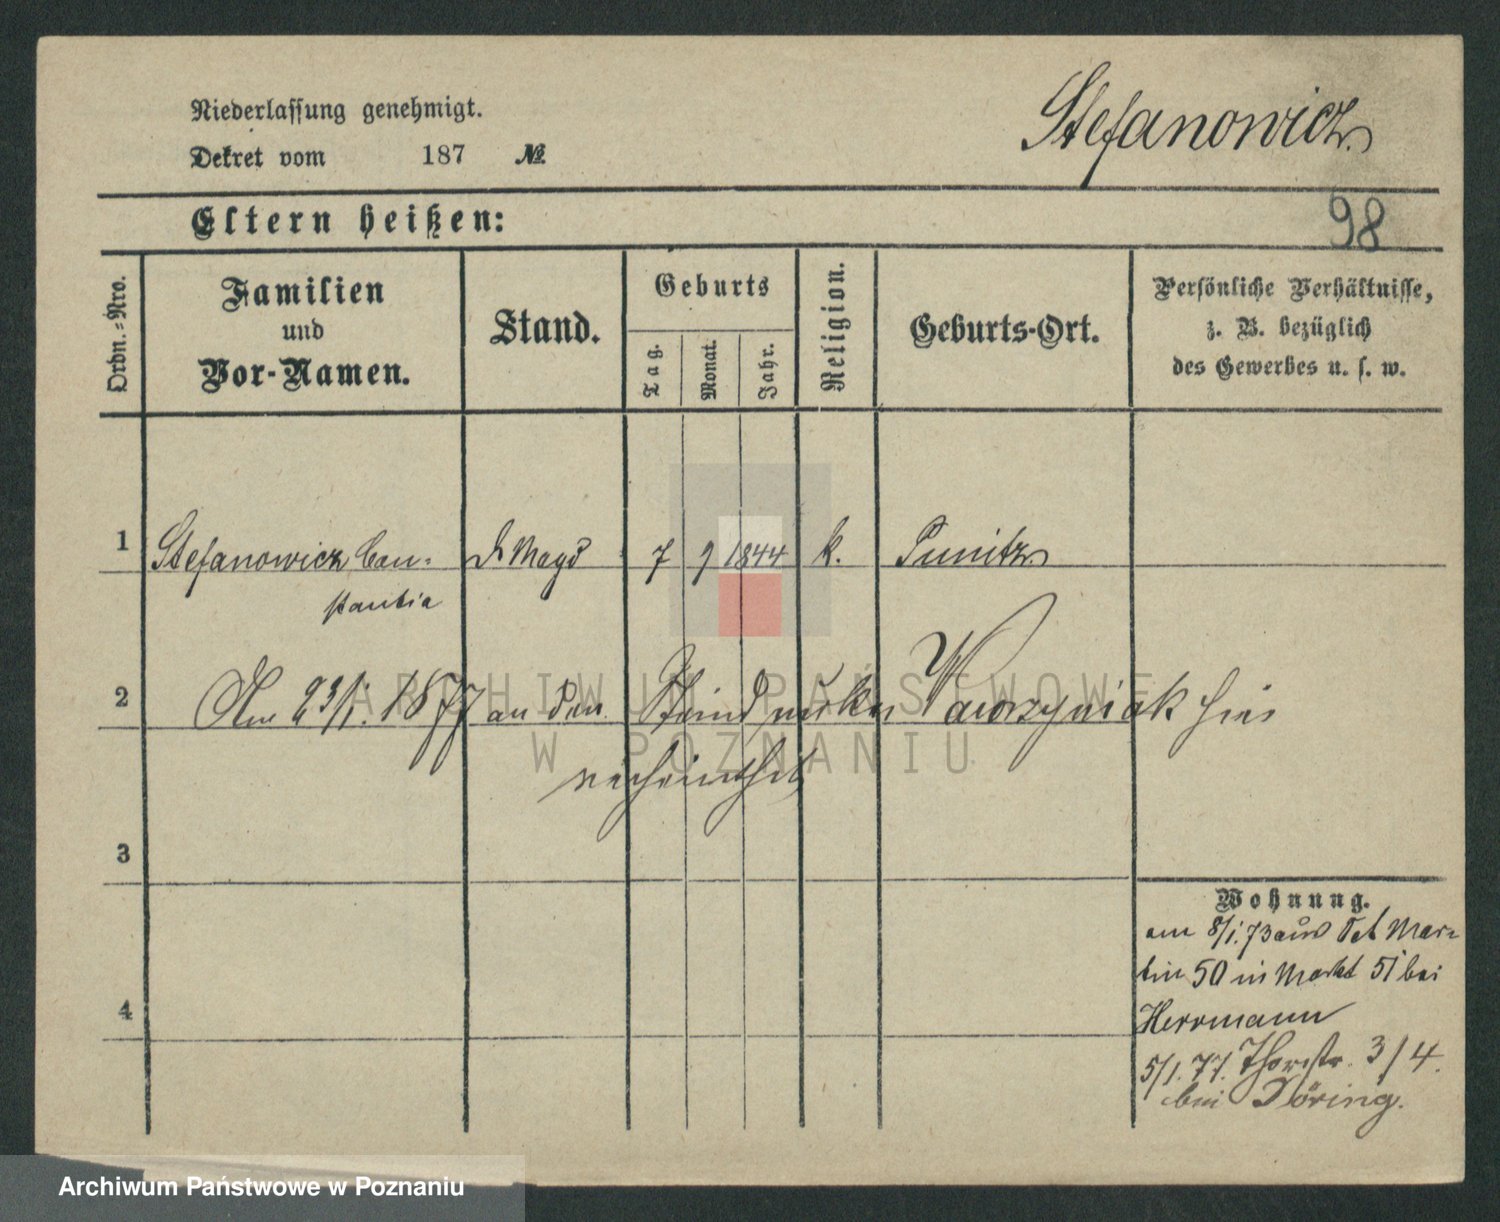 Niederlassung genehmigt.
Stefanowicz
Dekret vom 187 №
Eltern heißen:
98
Ordn.-Nro.
Familien
und
Vor-Namen.
Stand.
Geburts
Tag.
Monat.
Jahr.
Religion.
Geburts-Ort.
Persönliche Verhältnisse,
z. B. bezüglich
des Gewerbes u. s. w.
1 Stefanowicz Con= d. Magd 7 9 1844 k. Punitz
stantia
2 Am 23/1. 1877 an den Wawrzyniak hier
verheirathet
3
Wohnung.
am 8/1. 73 aus Set Mar=
tin 50 in Markt 51 bei
4 Herrmann
5/1. 77. Thorstr. 3/4.
bei Döring.
ARCHIWUM PAŃSTWOWE
W POZNANIU
Archiwum Państwowe w Poznaniu